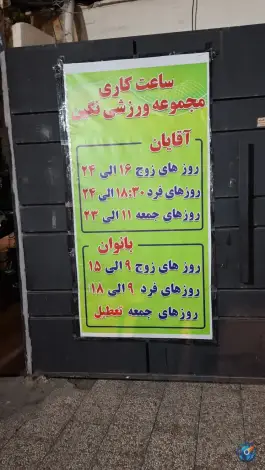 ساعت کاری
مجموعه ورزشی نگین
آقایان
روز های زوج ۱۶ الی ۲۴
روزهای فرد ۱۸:۳۰ الی ۲۴
روزهای جمعه ۱۱ الی ۲۳
بانوان
روز های زوج ۹ الی ۱۵
روزهای فرد ۹ الی ۱۸
روزهای جمعه تعطیل